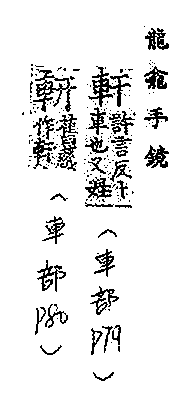 龍龕手鏡
軒許言反
車也又姓
(車部 P79)
舊藏
作軒
(車部 P80)